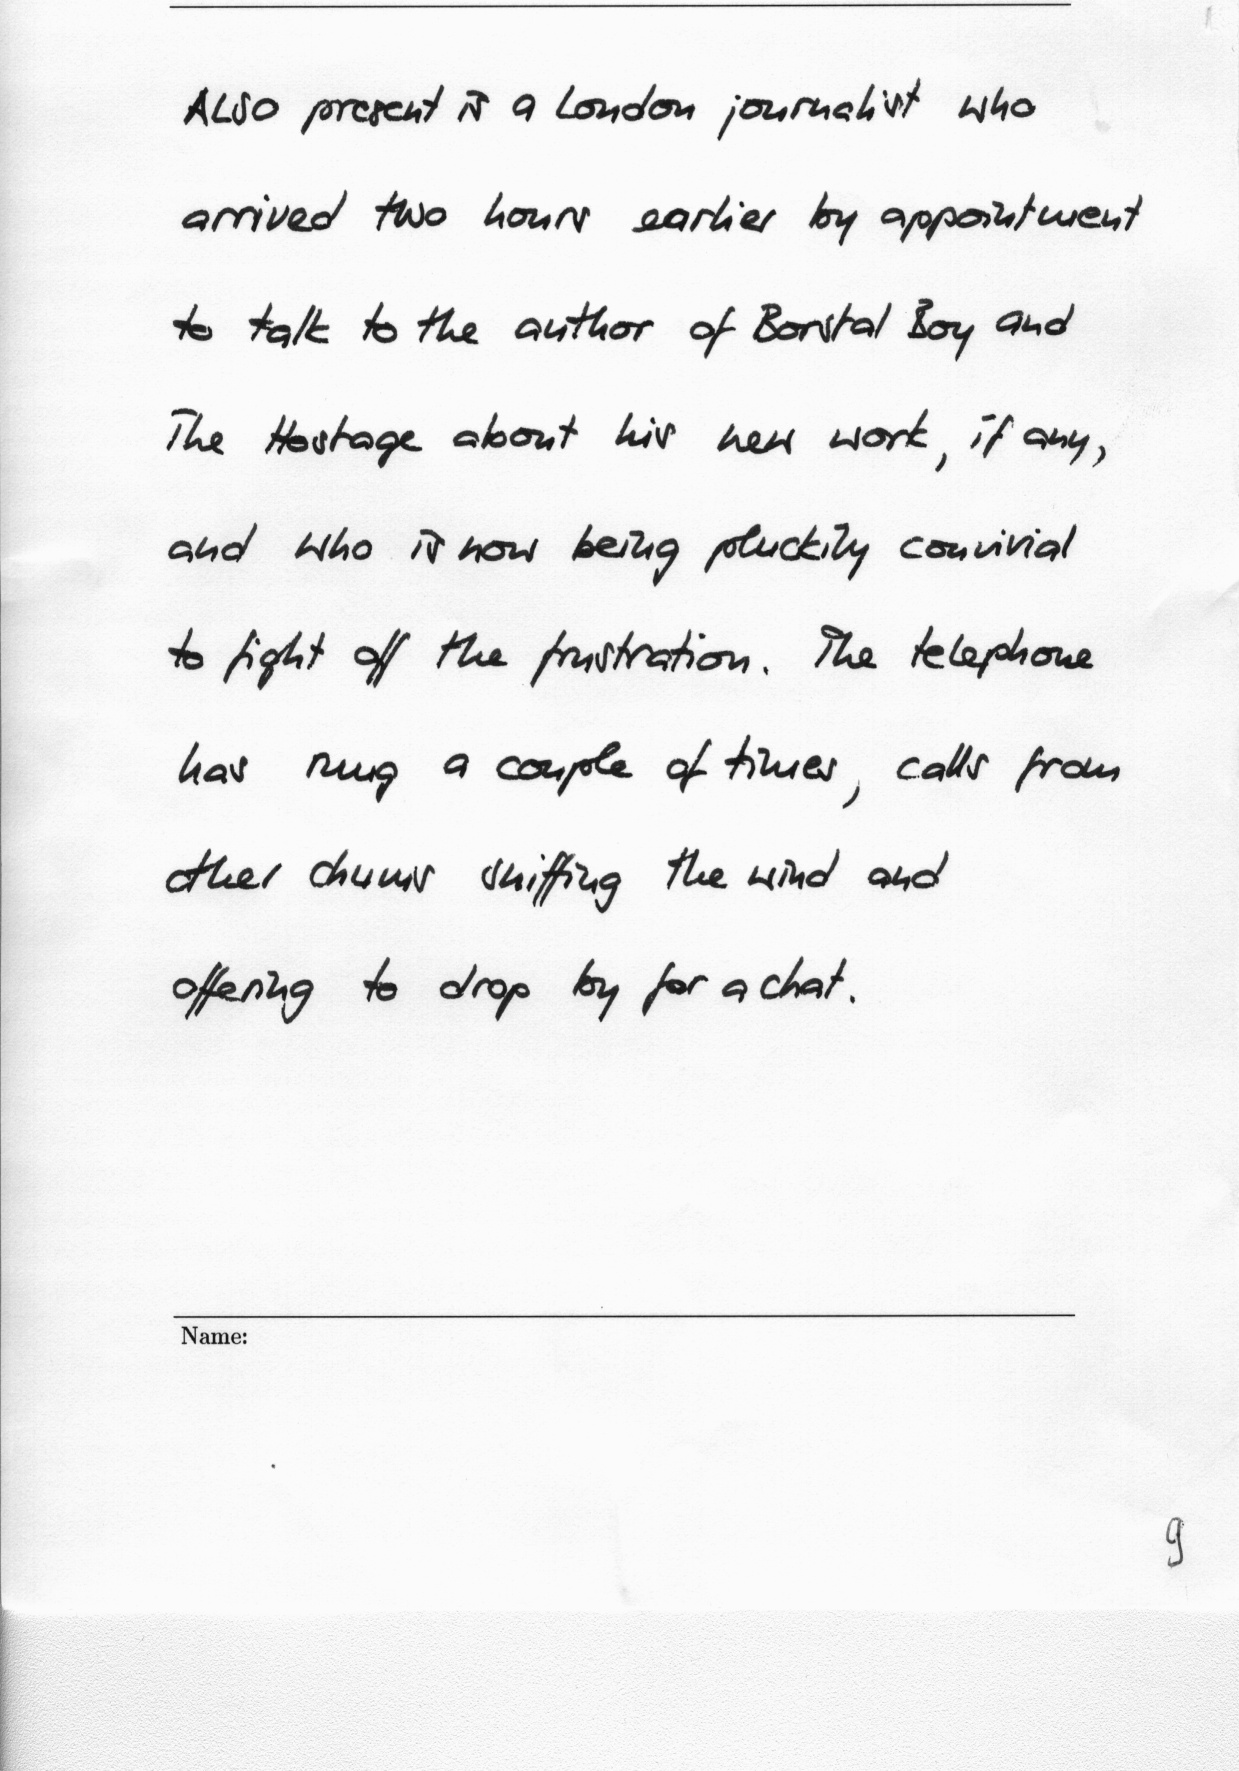 Also present is a London journalist who
arrived two hours earlier by appointment
to talk to the author of Borstal Boy and
The Hostage about his new work, if any,
and who is now being pluckily convivial
to fight off the frustration. The telephone
has rung a couple of times, calls from
other chums sniffing the wind and
offering to drop by for a chat.
Name:
9